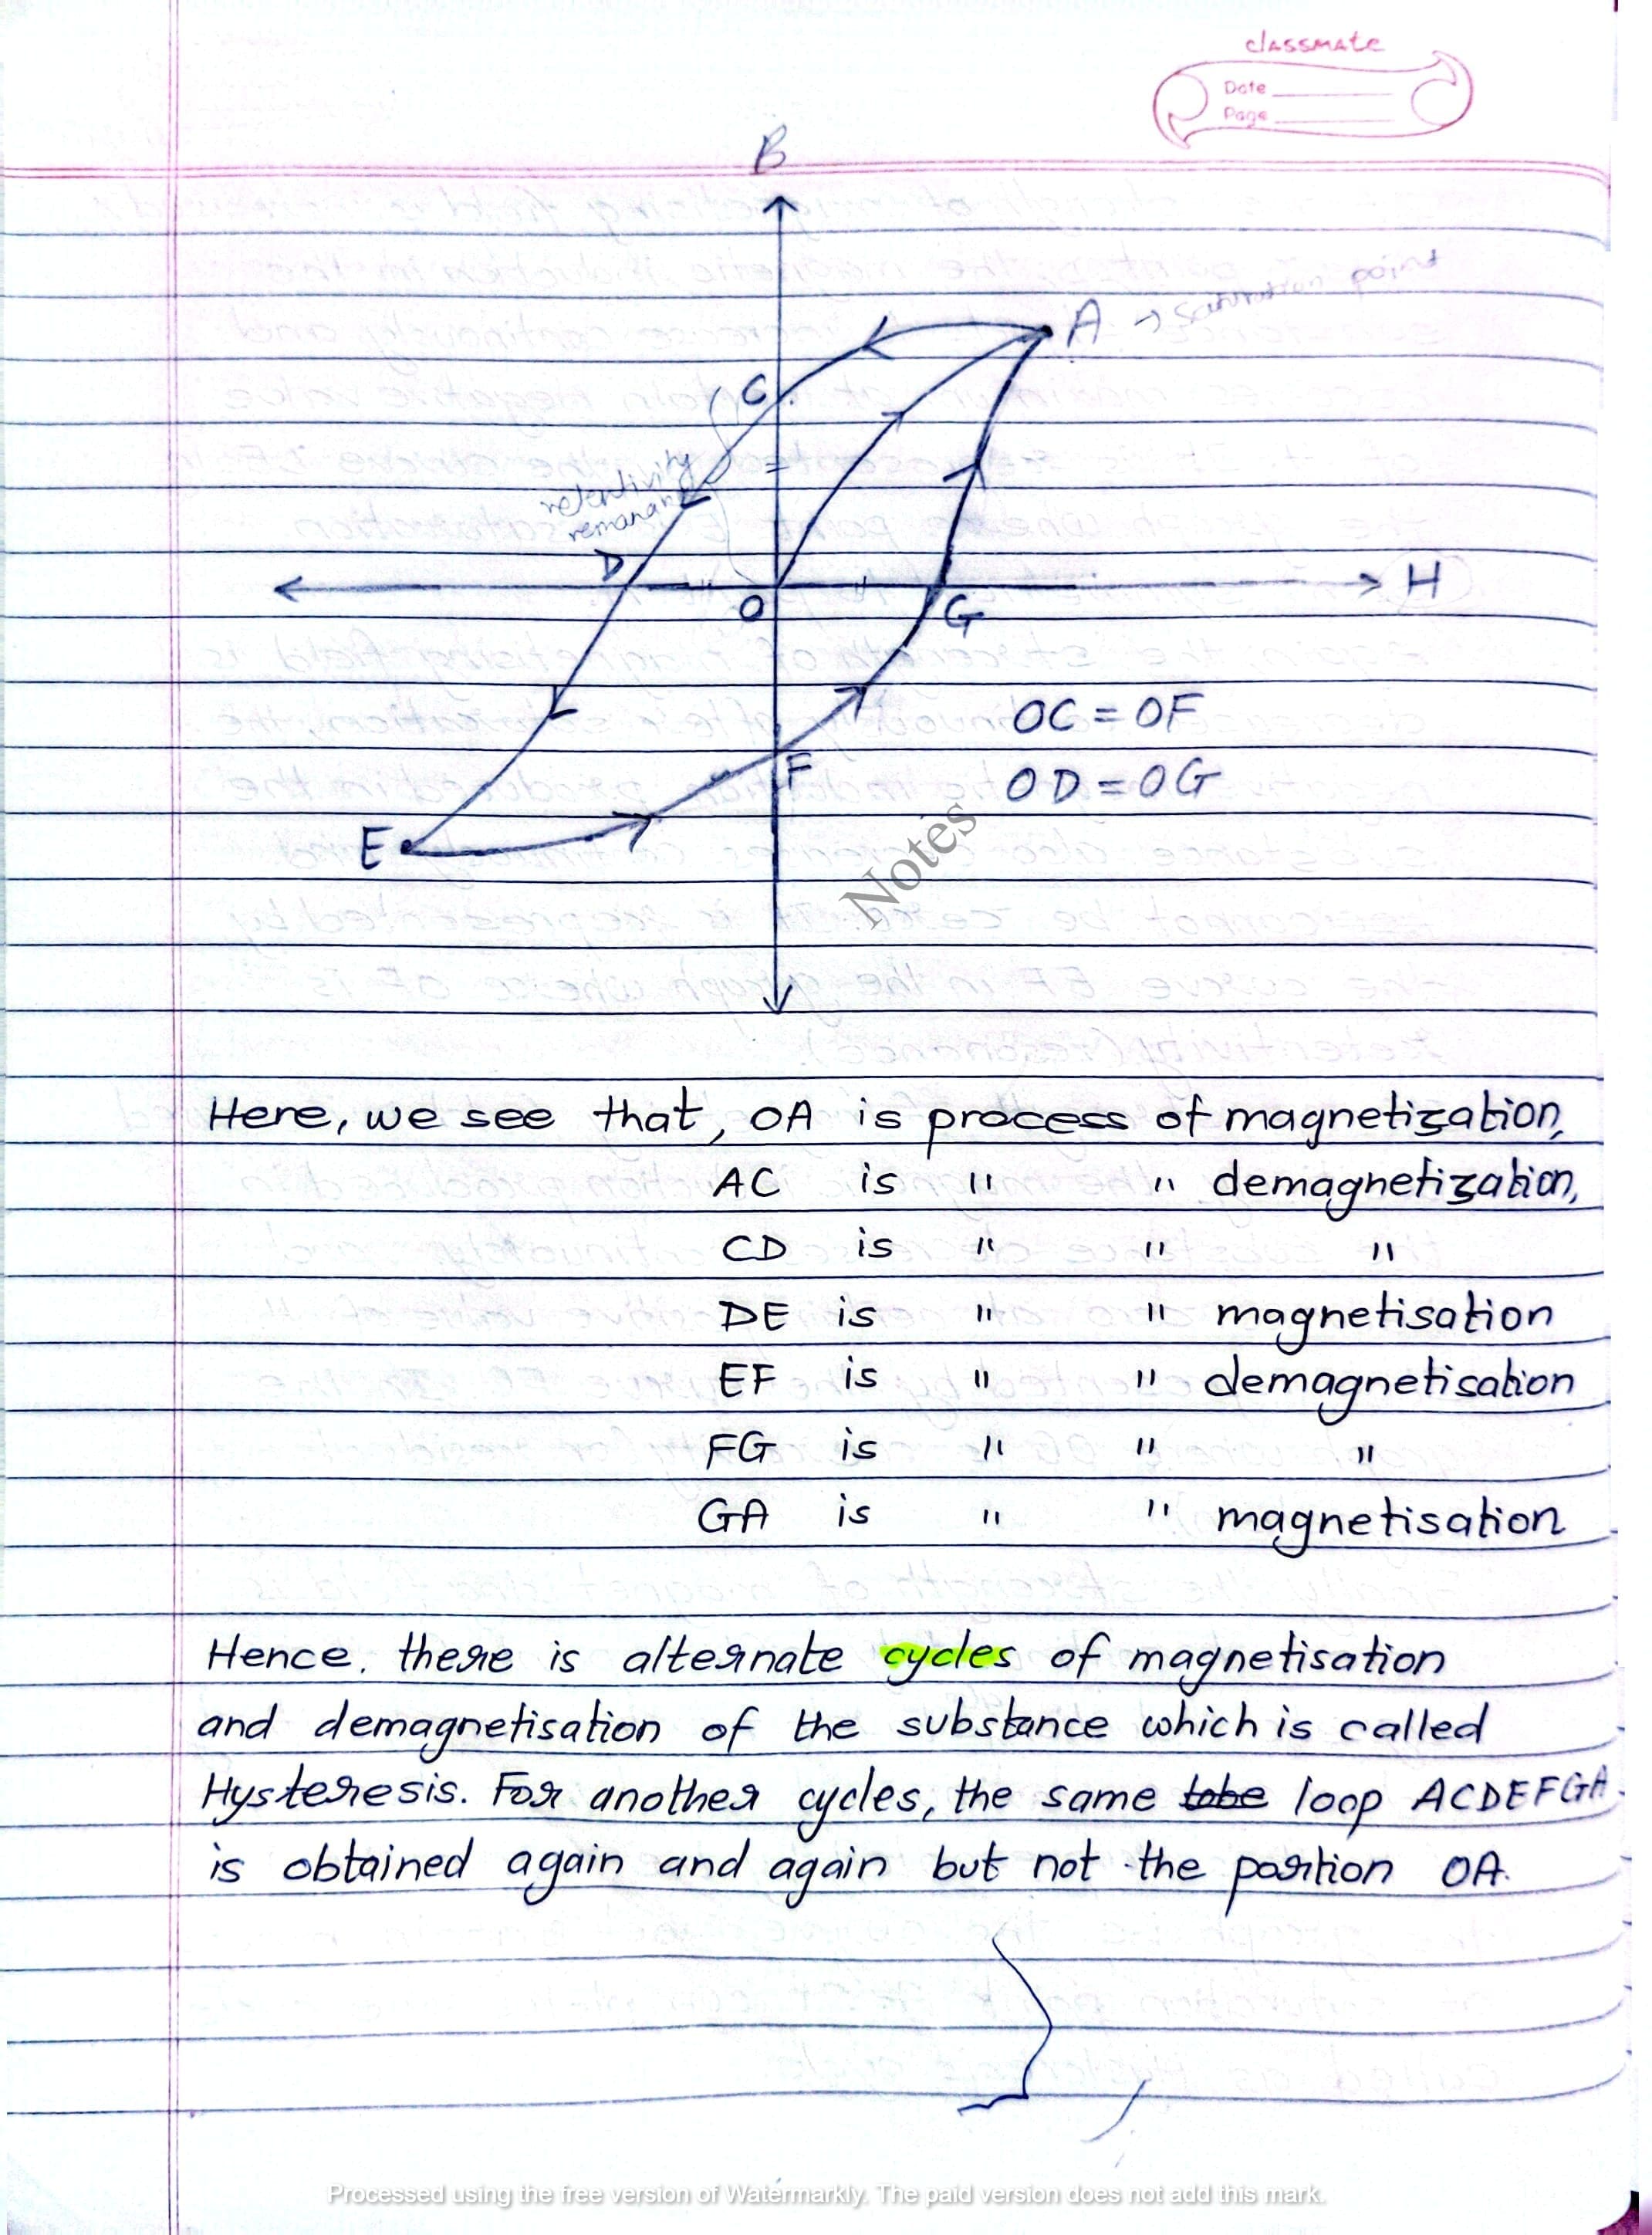 classmate
Date
Page
B
A → saturation point
C
retentivity
D
O
G
H
OC = OF
OD = OG
F
E
Notes
Here, we see that, OA is process of magnetization,
AC is " " demagnetization,
CD is " " "
DE is " " magnetisation
EF is " " demagnetisation
FG is " " "
GA is " " magnetisation
Hence. there is alternate cycles of magnetisation
and demagnetisation of the substance which is called
Hysteresis. For another cycles, the same loop ACDEFGA
is obtained again and again but not the portion OA.
Processed using the free version of Watermarkly. The paid version does not add this mark.